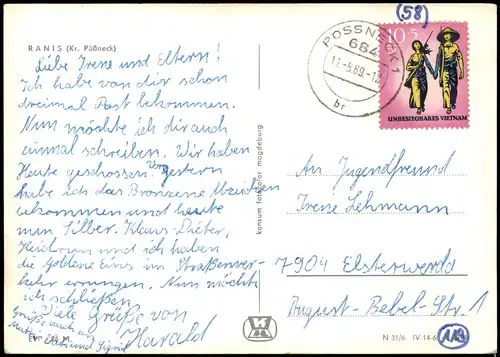 RANIS (Kr. Pößneck)
Liebe Irene und Eltern!
Ich habe von dir schon
dreimal Post bekommen.
Nun möchte ich dir auch
einmal schreiben. Wir haben
Heute geschossen. Vorgestern
habe ich das Bronzene Abzeichen
bekommen und heute
nun Silber. Klaus-Dieter,
Heidrun und ich haben
die Goldene Eins im Straßenver-
kehr errungen. Nun möchte
ich schließen.
Viele Grüße von
Harald
Grüße auch an
Mutti, und Sigrid
konsum fotocolor magdeburg
(58)
PÖSSNECK 1
684
11.-8.69.-12
br
10+5
UNBESIEGBARES VIETNAM
An Jugendfreund
Irene Lehmann
7904 Elsterwerda
August-Bebel-Str. 1
N 31/6 IV-14-6